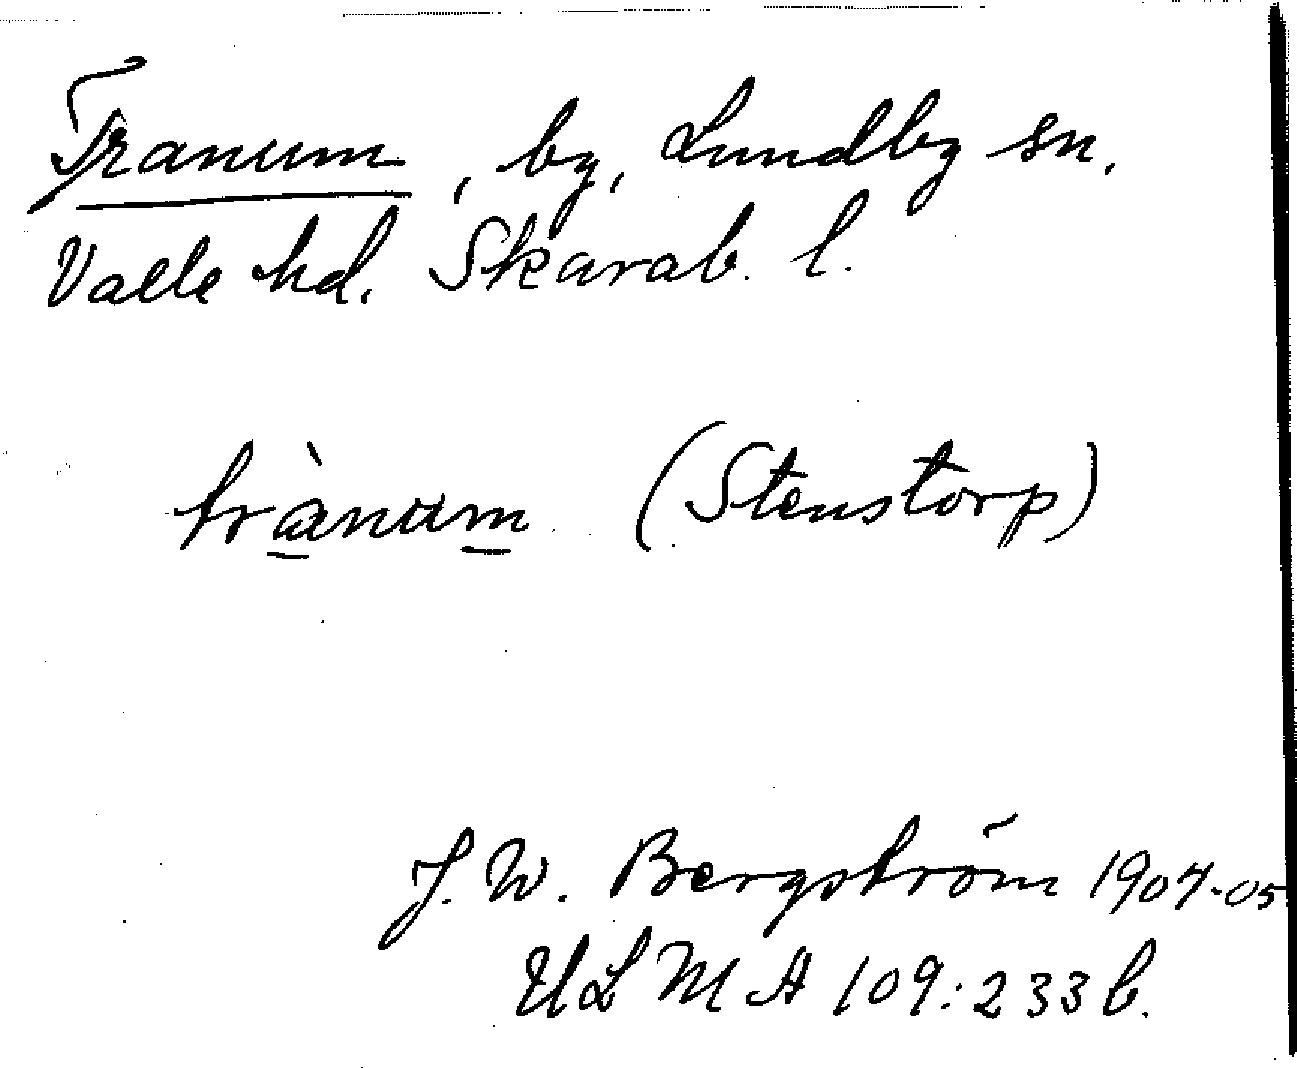 Tranum, by, Lundby sn.
Valle hd. Skarab. l.
trànum (Stenstorp)
J. W. Bergström 1904-05
ULMA 109:233 b.